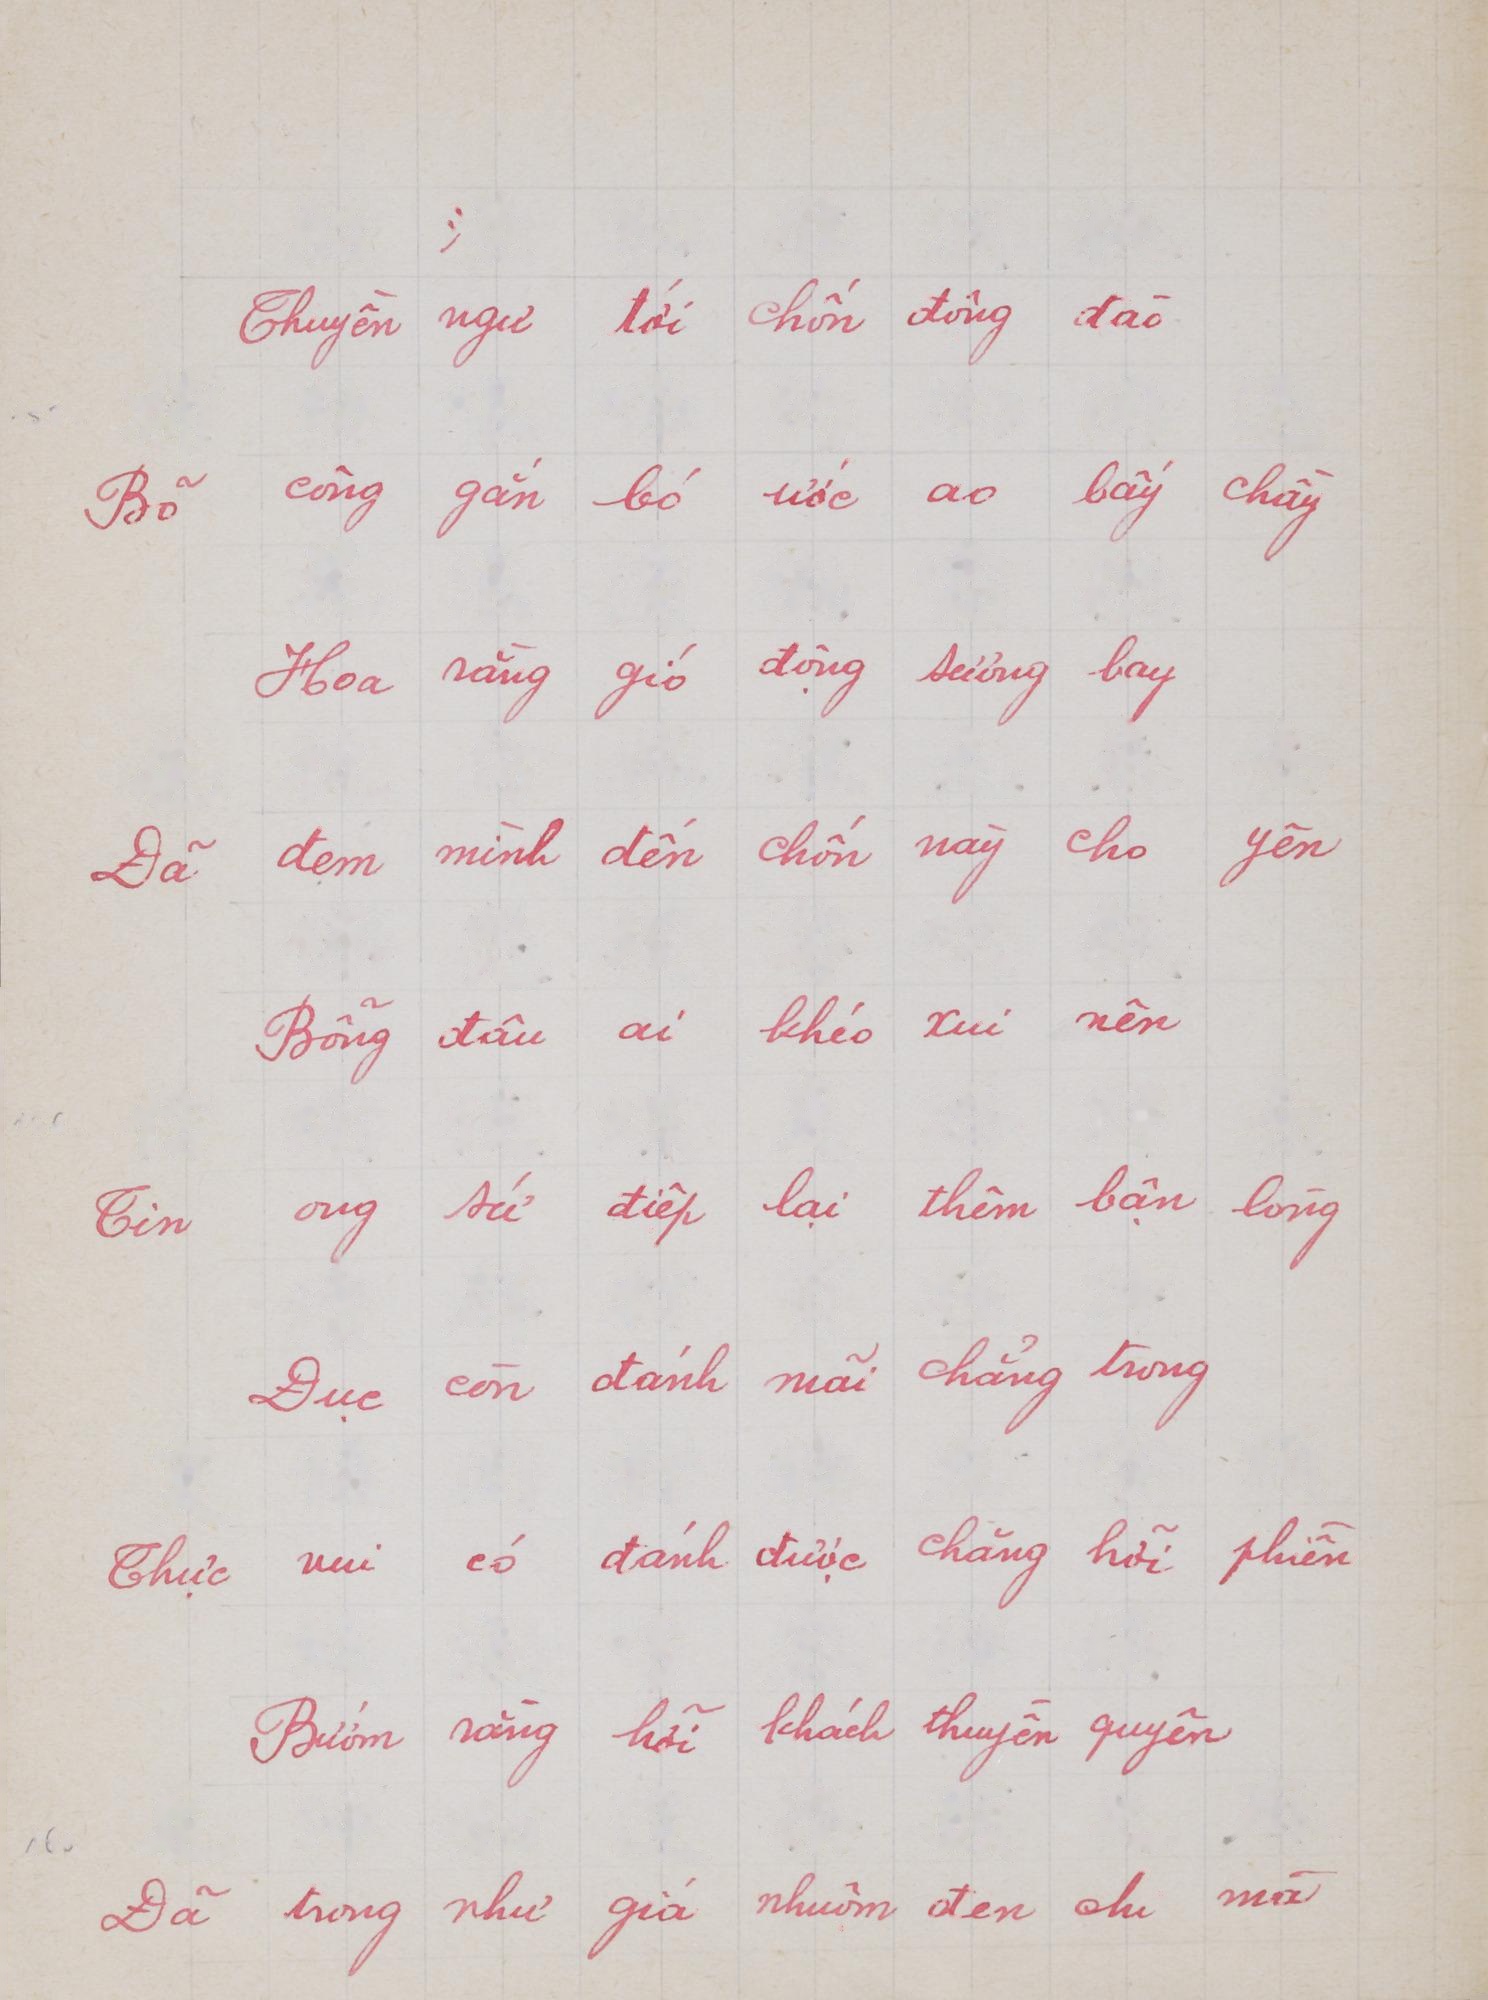 Thuyền ngư tới chốn động đào
Bõ công gắn bó ước ao bấy chầy
Hoa rằng gió động sương bay
Đã đem mình đến chốn này cho yên
Bỗng đâu ai khéo xui nên
Tin ong sứ điệp lại thêm bận lòng
Đục còn đánh mãi chẳng trong
Thực vui có đánh được chăng hỡi phiền
Bướm rằng hỡi khách thuyền quyên
Đã trong như giá nhuôm đen chi mà